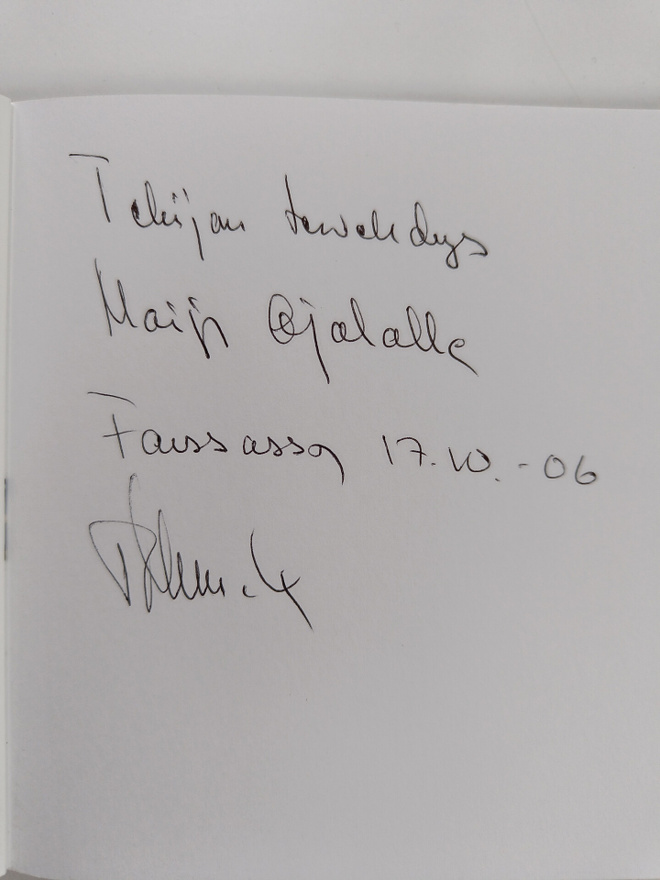 Tekijän tervehdys
Maija Ojalalle
Forssassa 17.10.-06